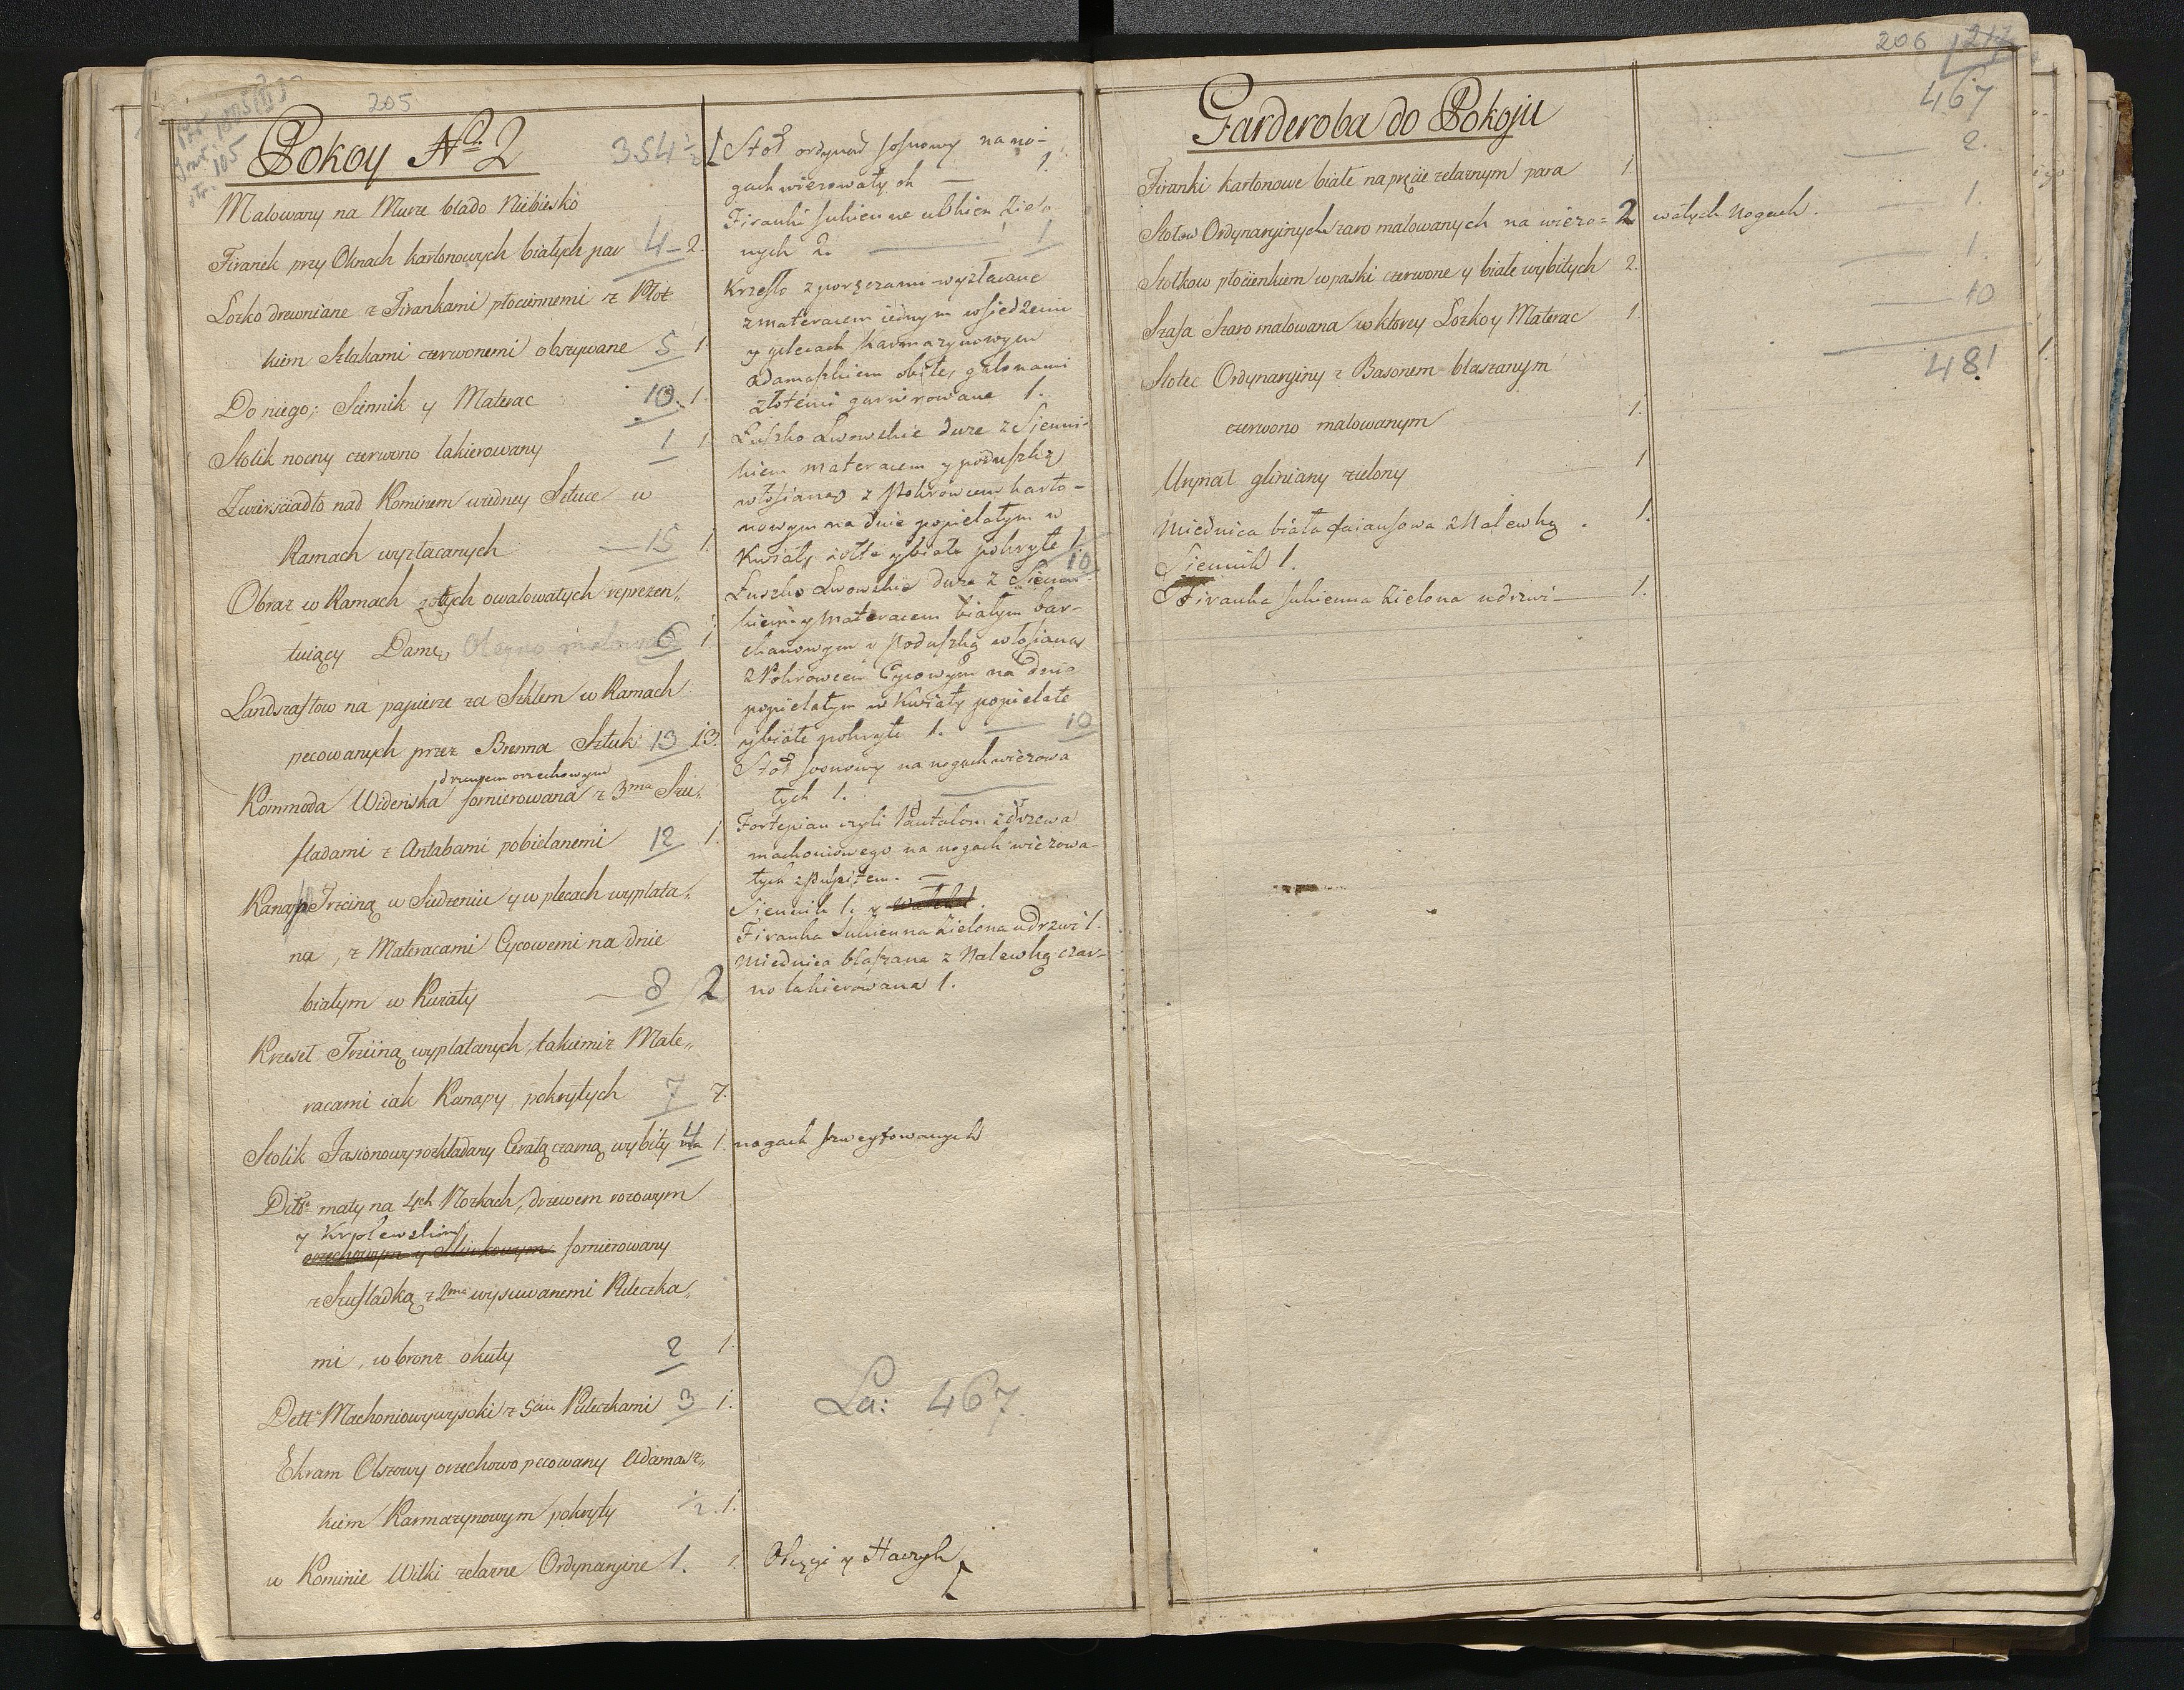 205
Pokoy Nr. 2 354 1/2
Malowany na Murze blado Niebiesko
Firanek przy Oknach kartonowych białych par 4 – 2.
Łozko drewniane z Firankami płociennemi z Płot
kiem Szlakami czerwonemi obszywane 5 1.
Do niego; Siennik y Materac 10. 1.
Stolik nocny czerwono lakierowany 1 1
Zwierściadło nad Kominem wiedney Sztuce w
Ramach wyzłacanych — 15 1.
Obraz w Ramach żołtych owalowatych reprezen„
tuiący Damę, Olejno malowany 6 1
Landszaftow na papierze za Szkłem w Ramach
pecowanych przez Brenna Sztuk 13 13.
drzewem orzechowym
Kommoda Wideńska fornierowana z 3ma Szu„
fladami z Antabami pobielanemi 12 1.
Kanap Trzciną w Siedzeniu y w plecach wyplata„
na, z Materacami Cycowemi na dnie
białym w Kwiaty — 8 2
Krzeseł Trzciną wyplatanych, takiemiz Mate„
racami iak Kanapy pokrytych 7 7.
Stolik Jasionowy rozkładany Ceratą czarną wybity na 4 1. nogach szweyfowanych
Ditto mały na 4ch Nozkach, drzewem rozowym
y Krolewskim
orzechowym y Sliwkowym fornierowany
z Szufladką z 2ma wysuwanemi Puleczka„
mi, w bronz okuty 2 1.
Detto Machoniowy wysoki z 5ciu Puleczkami 3 1.
Ekram Olszowy orzechowo pecowany Adamasz„
kiem Karmazynowym pokryty 1/2. 1.
w Kominie Wilki zelazne Ordynaryine 1. 1. Obcęgi y Haczyk
Stoł ordynar. sosnowy na no-
gach wierzowatych — 1.
Firanki sukienne u Okien Zielo
nych 2. — 1
Krzesło z poręczami wyzłacane
z materacem iednym w siedzeniu
y plecach Karmazynowym
adamaszkiem obite, galonami
złotemi garnirowane 1.
Łuszko Lwowskie duze z Sienni-
kiem materacem y poduszką
włosianą z Pokrowcem karto-
nowym na dnie popielatym w
Kwiaty żołte y białe pokryte 1.
10
Łuszko Lwowskie duze z Sienni-
kiem y Materacem białym bar-
chanowym y Poduszką włosianą
z Pokrowcem Cycowym na dnie
popielatym w Kwiaty popielate
y białe pokryte 1. — 10
Stoł sosnowy na nogach wierzowa
tych 1. —
Fortepian czyli Pantalon z drzewa
machoniowego na nogach wierzowa-
tych z Pulpitem. —
Siennik 1. y
Firanka Sukienna Zielona u Drzwi 1.
Miednica blaszana z Nalewką czar-
no lakierowana 1.
La: 467.
206 217
Garderoba do Pokoju
467
Firanki kartonowe białe na pręcie zelaznym para 1. — 2.
Stołow Ordynaryinych szaro malowanych na wierzo= 2 watych Nogach. — 1.
Stołkow płocienkiem w paski czerwone y białe wybitych 2. — 1.
Szafa Szaro malowana w ktorey Łozko y Materac 1. — 10
Stolec Ordynaryiny z Basonem blaszanym 481
czerwono malowanym 1.
Urynał gliniany zielony 1
Miednica biała faiansowa z Nalewką. 1.
Siennik 1.
Firanka sukienna Zielona u drzwi — 1.